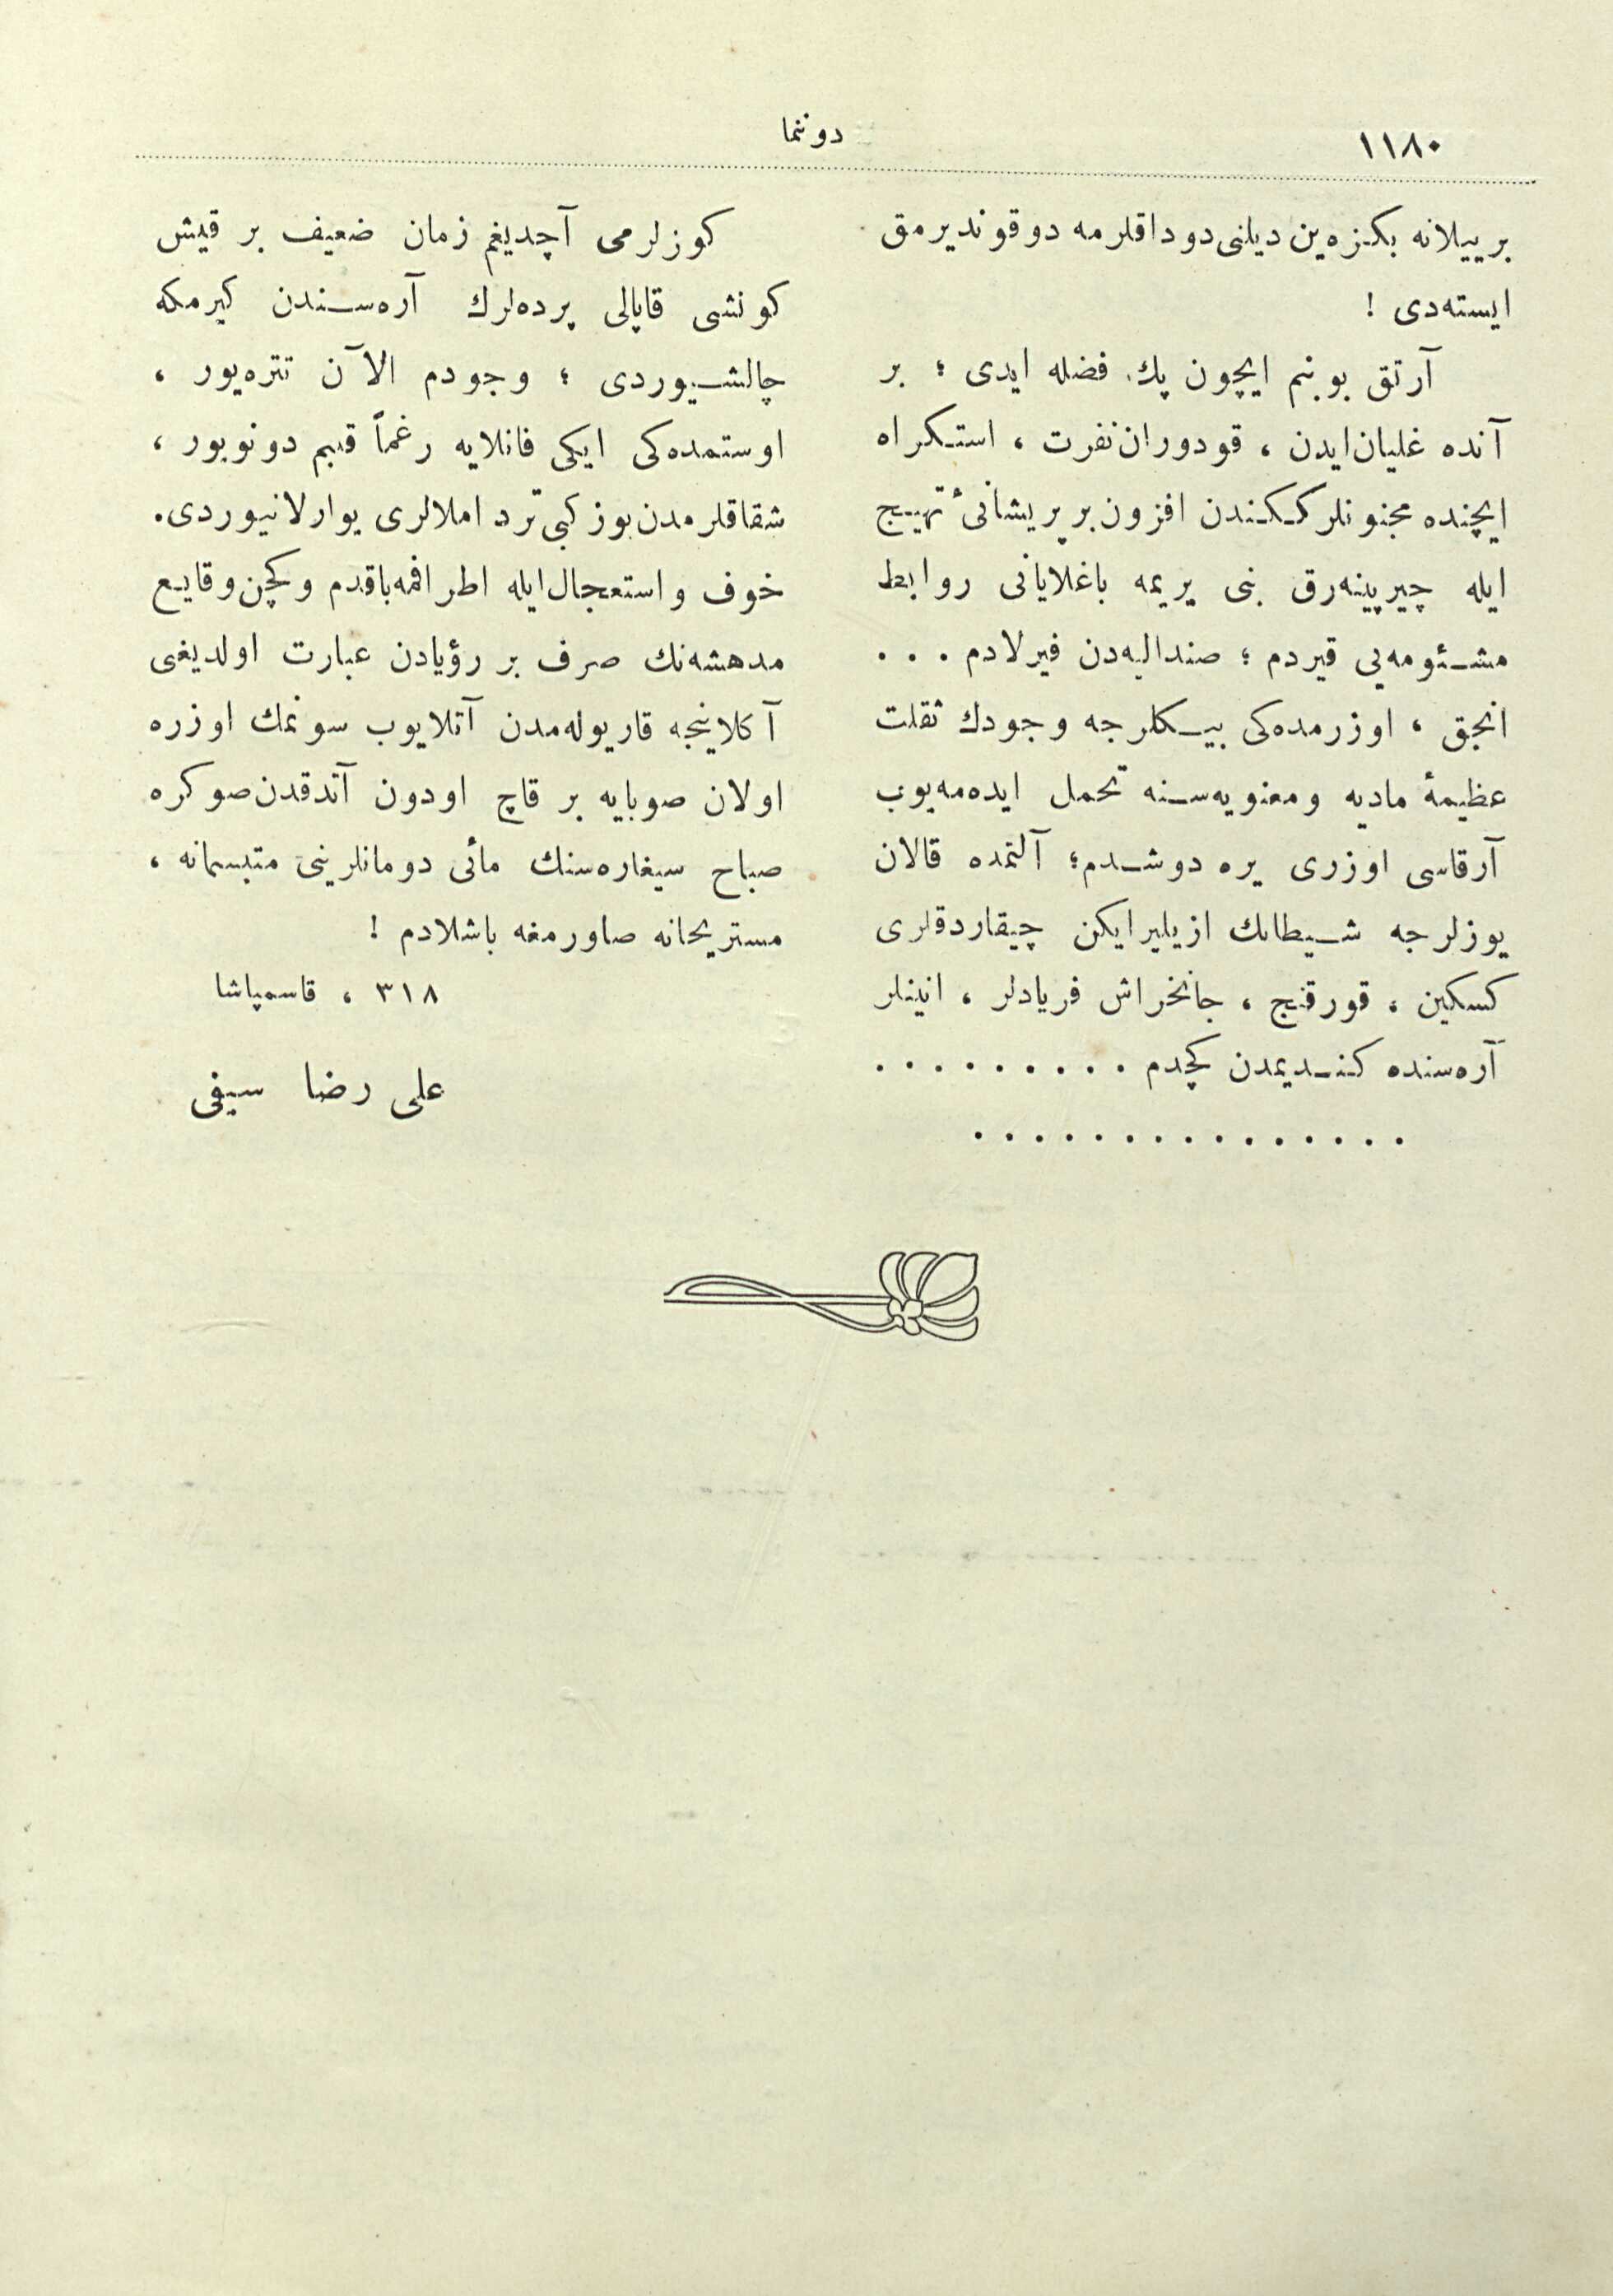 ١١٨٠
دوننما
بر ییلانه بكزه‌ین دیلنی دوداقلرمه دوقوندیرمق
ایسته‌دی !
آرتق بو بنم ایچون پك فضله ایدی ؛ بر
آنده غلیان ایدن ، قودوران نفرت ، استكراه
ایچنده مجنونلركـكندن افزون بر پریشانیٔ تهییج
ایله چیرپینه‌رق بنی یریمه باغلایانی روابط
مشئومه‌یی قیردم ؛ صندالیه‌دن فیرلادم . . .
انجق ، اوزرمده‌كی بیكلرجه وجودك ثقلت
عظیمهٔ مادیه ومعنویه‌سنه تحمل ایده‌مه‌یوب
آرقاسی اوزری یره دوشدم؛ آلتمده قالان
یوزلرجه شیطانك ازیلیرایكن چیقاردقلری
كسكین ، قورقنج ، جانخراش فریادلر ، انینلر
آره‌سنده كندیمدن كچدم . . . . . . . . .
. . . . . . . . . . . . . . .
كوزلرمی آچدیغم زمان ضعیف بر قیش
كونشی قاپالی پرده‌لرك آره‌سندن كیرمكه
چالشیوردی ؛ وجودم الآن تتره‌یور ،
اوستمده‌كی ایكی فانلایه رغماً قلبم دونویور ،
شقاقلرمدن بوز كبی تر داملالری یوارلانیوردی.
خوف واستعجال ایله اطرافمه باقدم وكچن وقایع
مدهشه‌نك صرف بر رؤیادن عبارت اولدیغی
آكلاینجه قاریوله‌مدن آتلایوب سونمك اوزره
اولان صوبایه بر قاچ اودون آتدقدن صوكره
صباح سیغاره‌سنك مائی دومانلرینی متبسمانه ،
مستریحانه صاورمغه باشلادم !
٣١٨ ، قاسمپاشا
علی رضا سیفی